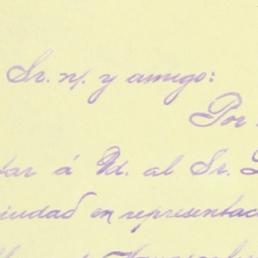 Sr. n/. y amigo:
Por
tar á Ud. al Sr.
ciudad en representac